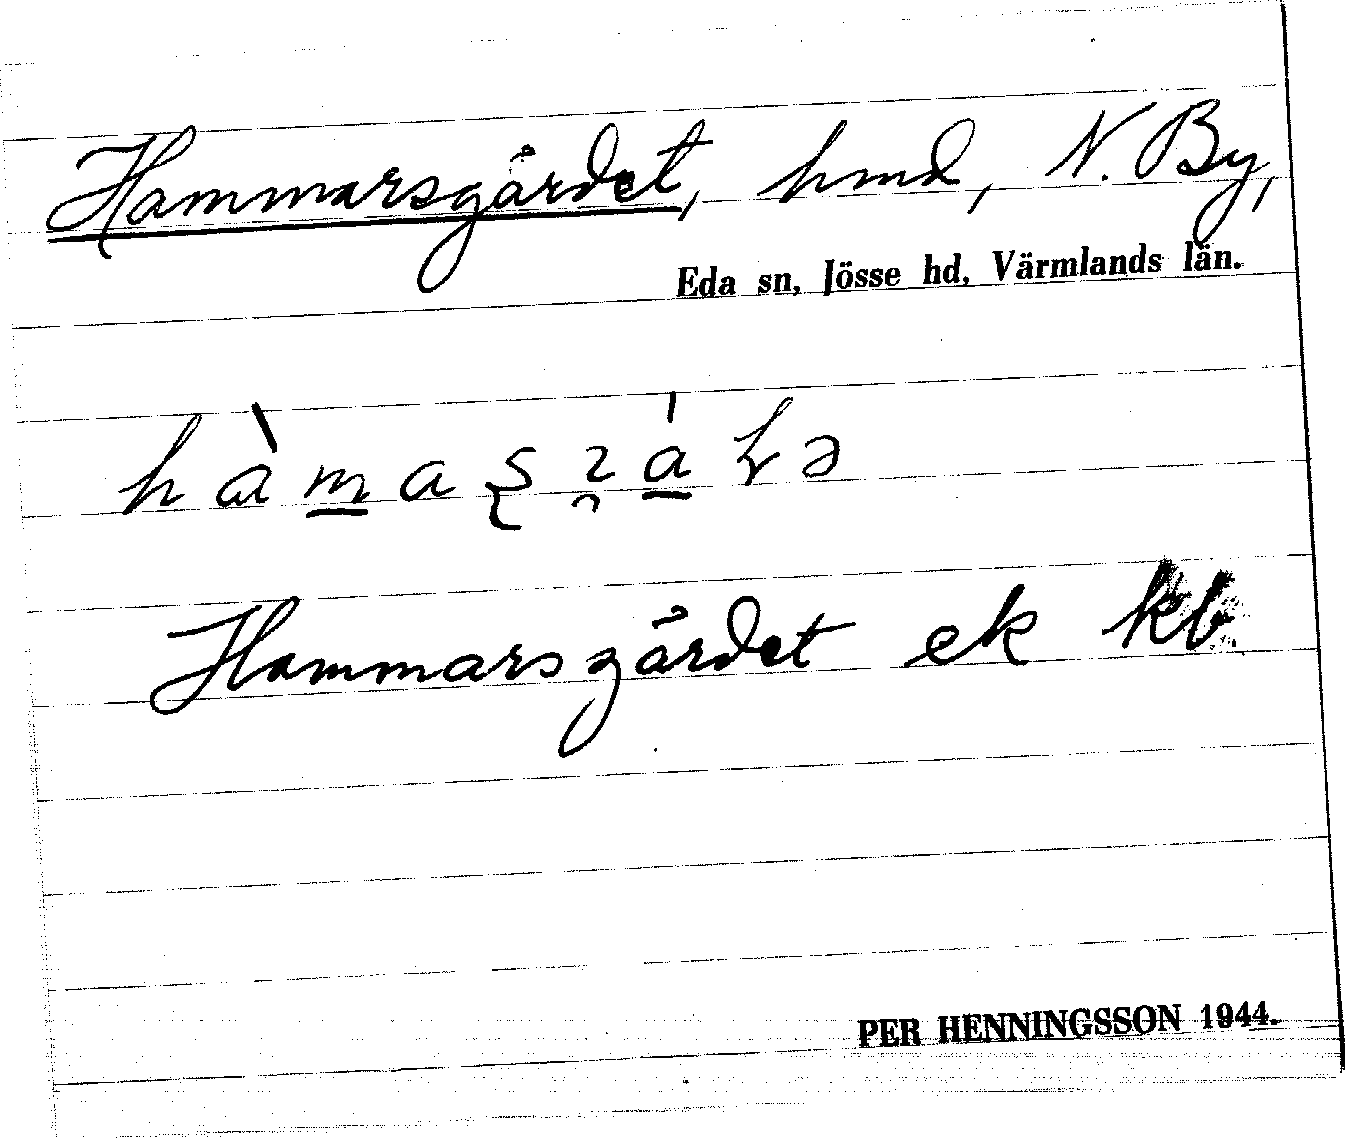 Hammarsgärdet, hmd, N. By,
Eda sn, Jösse hd, Värmlands län.
Hammarsgärdet ek kb
PER HENNINGSSON 1944.